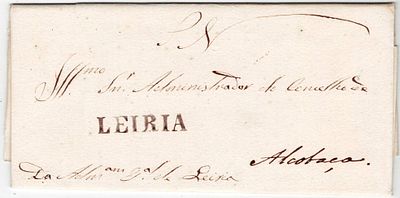 S. N.
Illmo Snr. Administrador do Concelho de
LEIRIA
Alcobaça.
Da Admam Gal de Leiria